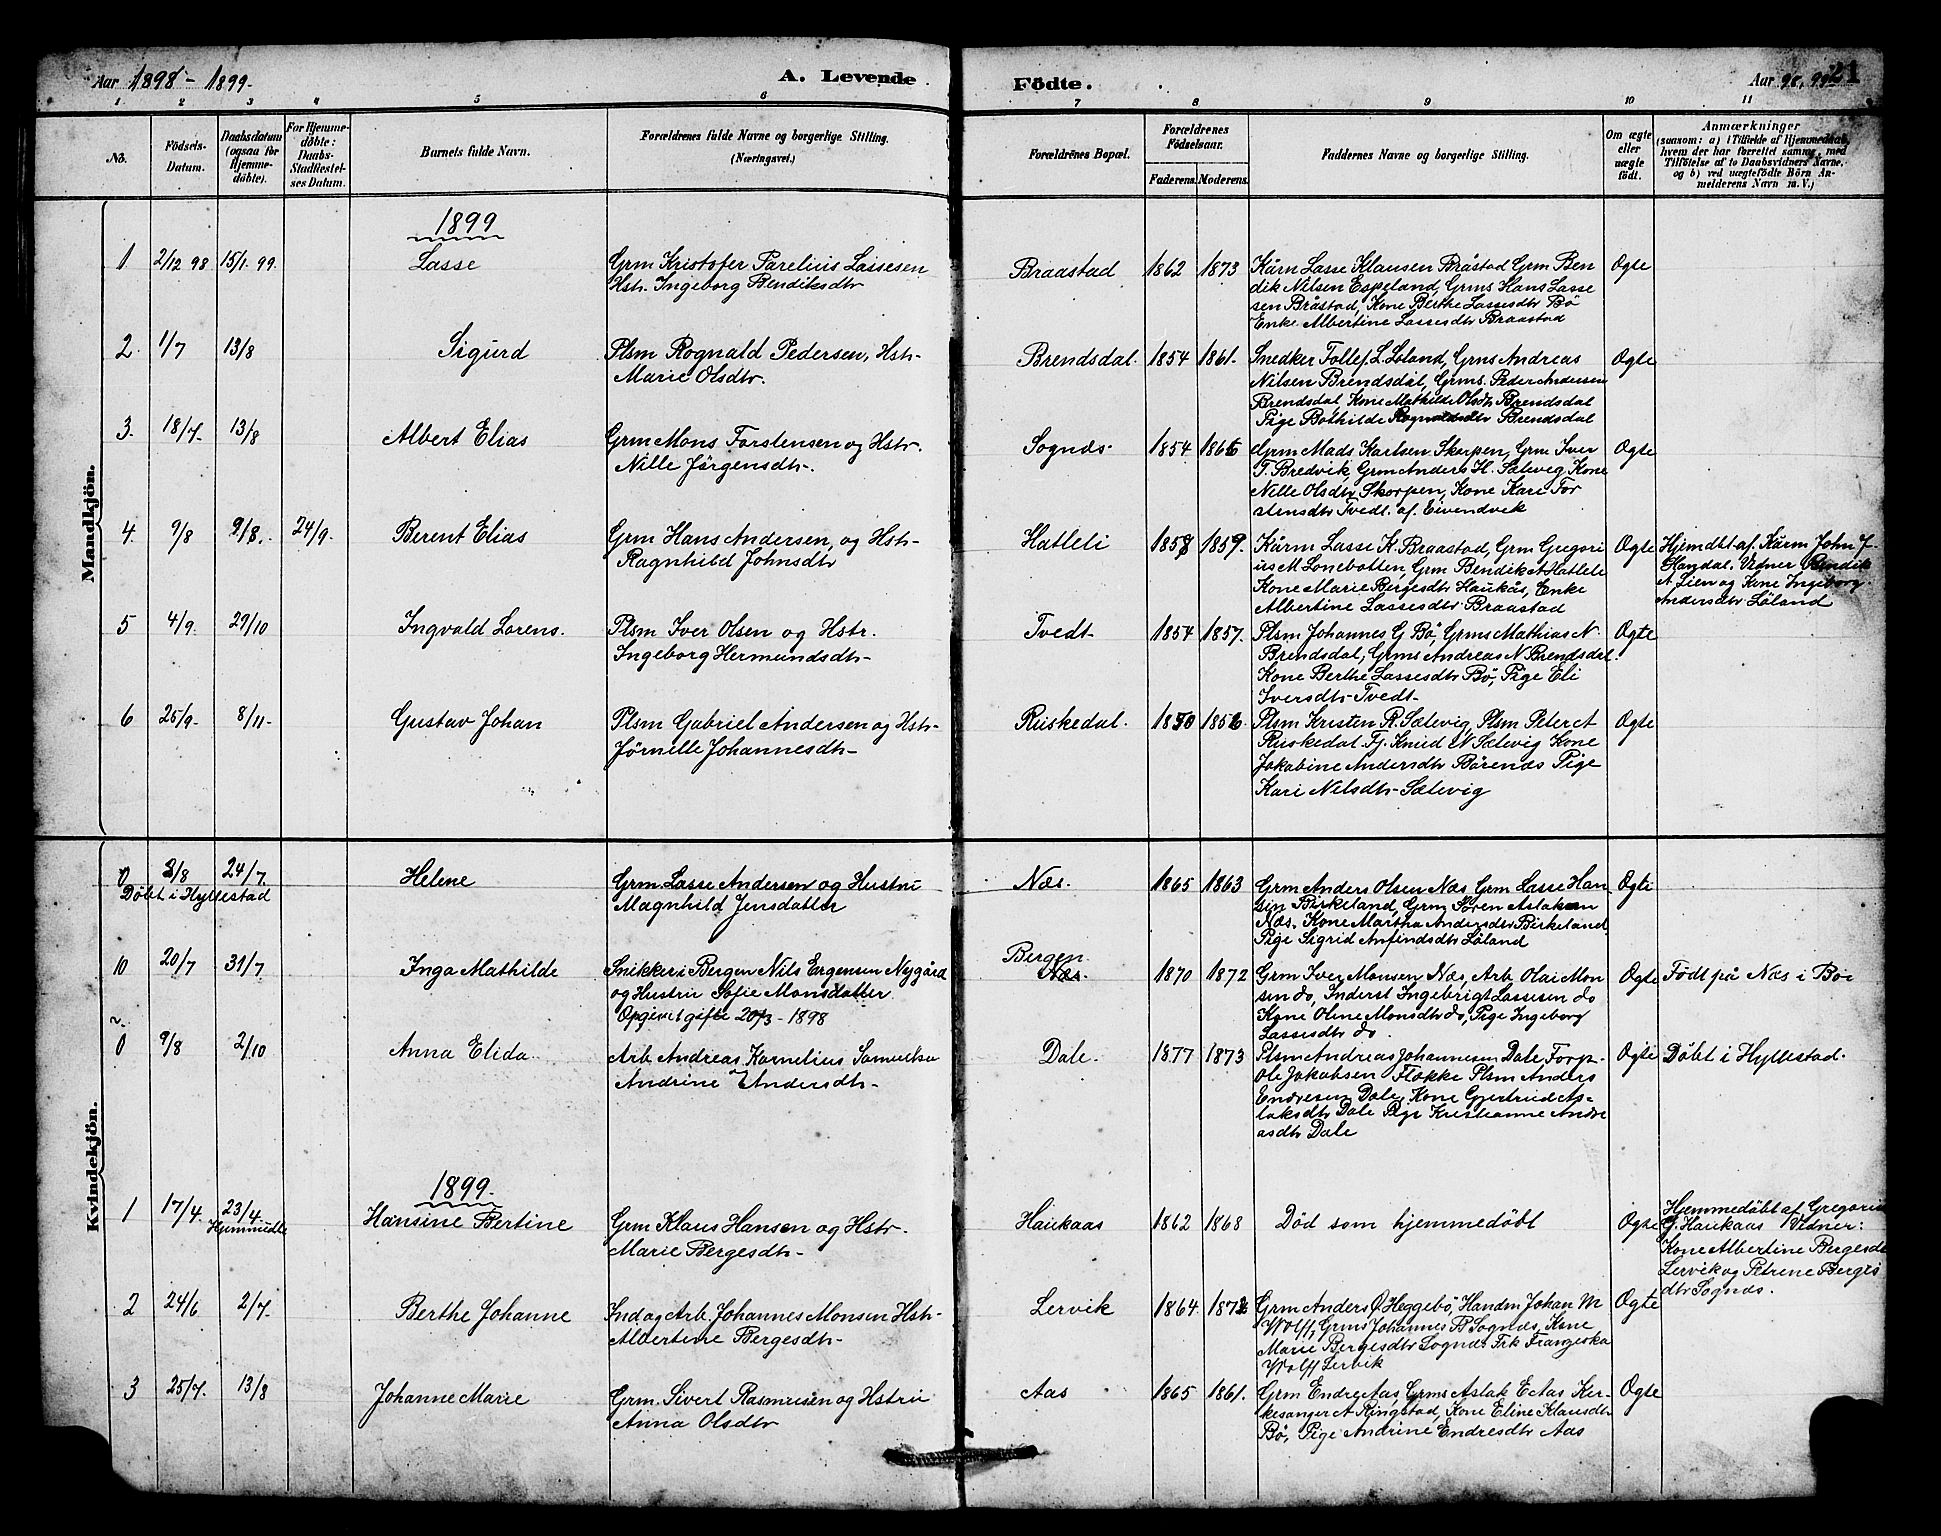 Aar 1898 - 1899.
A. Levende
Födte.
Aar 98, 99.
21
1 2 3 4 5 6 7 8 9 10 11
No.
Födsels-
Datum.
Daabsdatum
(ogsaa for
Hjemme-
döbte).
For Hjemme-
døbte:
Daabs-
Stadfæstel-
ses Datum.
Barnets fulde Navn.
Forældrenes fulde Navne og borgerlige Stilling.
(Næringsvei.)
Forældrenes Bopæl.
Forældrenes
Födselsaar.
Faderens. Moderens.
Faddernes Navne og borgerlige Stilling.
Om ægte
eller
uægte
födt.
Anmærkninger
(saasom: a) i Tilfælde af Hjemmedaab,
hvem der har forrettet samme, med
Tilföielse af to Daabsvidners Navne,
og b) ved uægtefödte Börn An-
melderens Navn m. V.)
Mandkjön.
1899
1 2/12 98 15/1. 99. Lasse
Grm Kristofer Parelius Lassesen
Hstr. Ingeborg Bendiksdtr
Braastad 1862 1873
Kårm Lasse Klausen Bråstad Grm Ben
dik Nilsen Espeland, Grms Hans Lasse
sen Bråstad, Kone Berthe Lassesdtr Bö
Enke Albertine Lassesdtr Braastad
Ogte
2 1/7 13/8 Sigurd
Plsm Rognald Pedersen, Hstr
Marie Olsdtr.
Brendsdal. 1854 1861.
Snedker Tollef L. Löland, Grms Andreas
Nilsen Brendsdal, Grms. Peder Andersen
Brendsdal Kone Mathilde Olsdtr Brendsdal
Pige Bothilde Rognaldsdtr Brendsdal
Ogte
3. 18/7. 13/8 Albert Elias
Grm Mons Torstensen og Hstr.
Nille Jörgensdtr.
Sognæs 1854 1866
Grm Mads Karlsen Skorpen, Grm Iver
T. Bredvik Grm Anders H. Sælevig Kone
Nille Olsdtr Skorpen, Kone Kari Tor
stensdtr Tvedt. af. Eivendvek
Ogte
4. 9/8 9/8. 24/9. Berent Elias
Grm Hans Andersen, og Hstr
Ragnhild Johnsdtr
Hatleli 1858 1859.
Kårm Lasse K. Braastad, Grm Gregori
us M Lonebotten Grm Bendik A Hatlele
Kone Marie Bergesdtr Haukås, Enke
Albertine Lassesdtr Braastad
Ogte
Hjemdbt af. Kårm John J
Handal. Vidner Bendik
A Lien og Kone Ingeborg
Andersdtr Löland
5 4/9. 29/10 Ingvald Lorens.
Plsm Iver Olsen og Hstr.
Ingeborg Hermundsdtr
Tvedt 1854 1857.
Plsm Johannes G Bö, Grms Mathias N.
Brendsdal, Grms Andreas N Brendsdal.
Kone Berthe Lassesdtr Bö, Pige Eli
Iversdtr Tvedt
Ogte
6 25/9. 8/11 Gustav Johan
Plsm Gabriel Andersen og Hstr
Jörnille Johannesdtr
Ruskedal. 1850 1856.
Plsm Kristen R. Sælevig, Plsm Peter A
Ruskedal. Tj. Knud N Sælevig Kone
Jakobine Andersdtr Börenæs Pige
Kari Nilsdtr Sælevig
Ogte
Kvindekjön.
0 3/8 24/7. Helene
Döbt i Hyllestad
Grm. Lasse Andersen og Hustru
Magnhild Jensdatter
Næs. 1865 1863
Grm Anders Olsen Næs, Grm Lasse Han
sen Birkeland, Grm Sören Aslaksen
Næs. Kone Martha Andersdtr Birkeland
Pige Sigrid Anfindsdtr Löland
Ogte
10 20/7 31/7 Inga Mathilde
Snikker i Bergen Nils Ergensen Nygård
og Hustru Sofie Monsdatter
Opgivet gifte 20/3 - 1898
Bergen
Næs. 1870 1872
Grm Iver Monsen Næs, Arb. Olai Mon
sen do, Inderst Ingebrigt Lassesen do
Kone Oline Monsdtr do, Pige Ingeborg
Lassesdtr do.
Ogte
Födt på Næs i Bö
0 9/8 2/10 Anna Elida
Arb Andreas Kornelius Samuelsen
Andrine Andersdtr
Dale. 1877 1873
Plsm Andreas Johannesen Dale, Forp.
Ole Jakobsen Flökke Plsm Anders
Endresen Dale, Kone Gjertrud As-
laksdtr Dale Pige Kristianne Andre
asdtr Dale
Ogte
Döbt i Hyllestad.
1899.
1 17/4. 23/4. Hansine Bertine
Grm Klaus Hansen og Hstr
Marie Bergesdtr
Haukaas 1862 1868
Död som hjemmedöbt
Ogte
Hjemmedöbt af Gregorius
G. Haukaas Vidner:
Kone Albertine Bergesdtr
Lervik og Petrine Berges
dtr Sognæs.
2 24/6 2/7. Berthe Johanne
Ind og Arb. Johannes Monsen Hstr
Albertine Bergesdtr
Lervik 1864 1872
Grm Anders O Heggebö, Handm Johan M
Wolff, Grms Johannes B Sognæs, Kone
Marie Bergesdtr Sognæs Frk Franziska
Wolff Lervik
Ogte
3 25/7. 13/8 Johanne Marie
Grm. Sivert Rasmussen og Hstru
Anna Olsdtr
Aas 1865 1861.
Grm Endre Aas, Grms Aslak E Aas Kir-
kesanger A Ringstad, Kone Eline Klausdtr
Bö, Pige Andrine Endresdtr Aas
Ogte